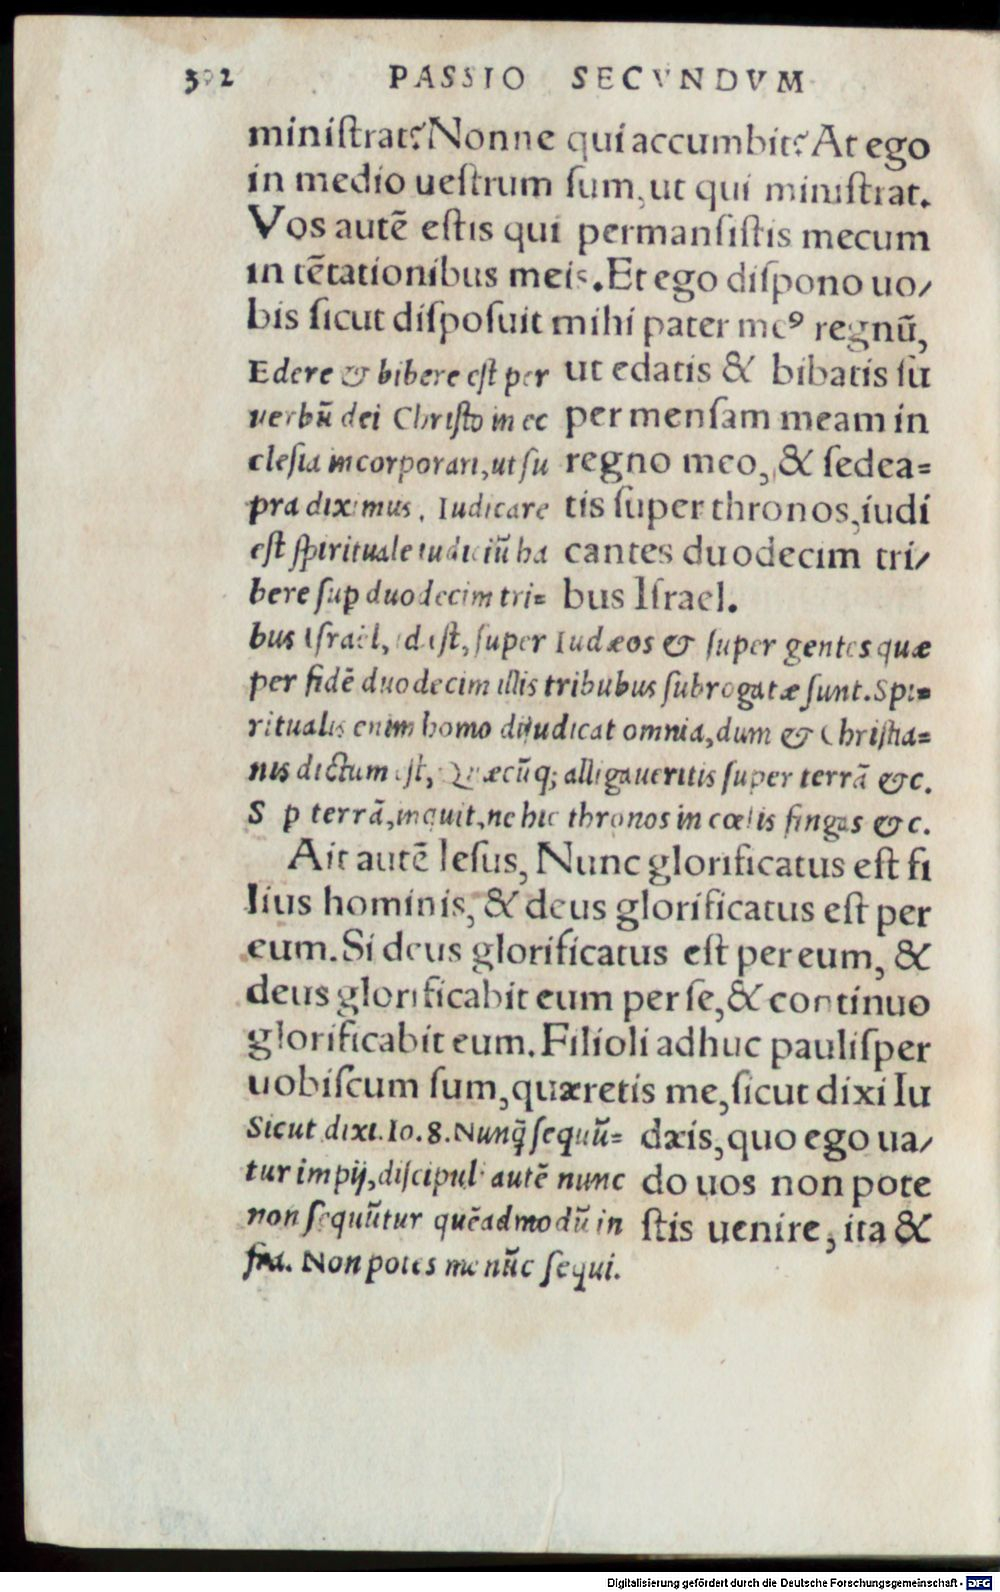 302 PASSIO SECVNDVM
miniſtrat? Nonne qui accumbit? At ego
in medio ueſtrum ſum, ut qui miniſtrat.
Vos autē eſtis qui permanſiſtis mecum
in tētationibus meis. Et ego diſpono uo/
bis ſicut diſpoſuit mihi pater meꝰ regnū,
ut edatis & bibatis ſu
per menſam meam in
regno meo, & ſedea=
tis ſuper thronos, iudi
cantes duodecim tri/
bus Iſrael.
Edere & bibere eſt per
verbū dei Chriſto in ec
cleſia incorporari, ut ſu
pra diximus. Iudicare
eſt ſpirituale iudiciū ha
bere ſuꝑ duodecim tri=
bus Iſraël, id eſt, ſuper Iudæos & ſuper gentes quæ
per fidē duodecim illis tribubus ſubrogatæ ſunt. Spi=
ritualis enim homo dijudicat omnia, dum & Chriſtia=
nis dictum eſt, Quæcūq; alligaueritis ſuper terrā &c.
S ꝑ terrā, inquit, ne hic thronos in cœlis fingas &c.
Ait autē Ieſus, Nunc glorificatus eſt fi
lius hominis, & deus glorificatus eſt per
eum. Si deus glorificatus eſt per eum, &
deus glorificabit eum per ſe, & continuo
glorificabit eum. Filioli adhuc pauliſper
uobiſcum ſum, quæretis me, ſicut dixi Iu
dæis, quo ego ua/
do uos non pote
ſtis uenire, ita &
Sicut dixi. Io. 8. Nunq̄ ſequū=
tur impij, diſcipuli autē nunc
non ſequūtur quēadmodū in
fra. Non potes me nūc ſequi.
Digitalisierung gefördert durch die Deutsche Forschungsgemeinschaft - DFG